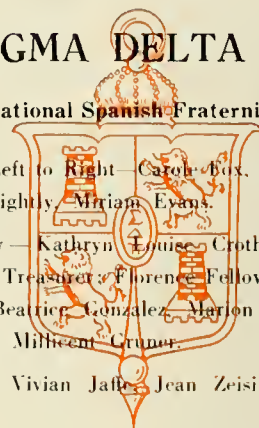 GMA DELTA
ational Spanish Fraterni
eft to Right—Carole Fox,
ightly, Miriam Evans.
—Kathryn Louise Croth
Treasurer; Florence Fellow
Beatrice Gonzalez, Marion
Millicent Gruner.
Vivian Jaffe, Jean Zeisi
Σ
Δ